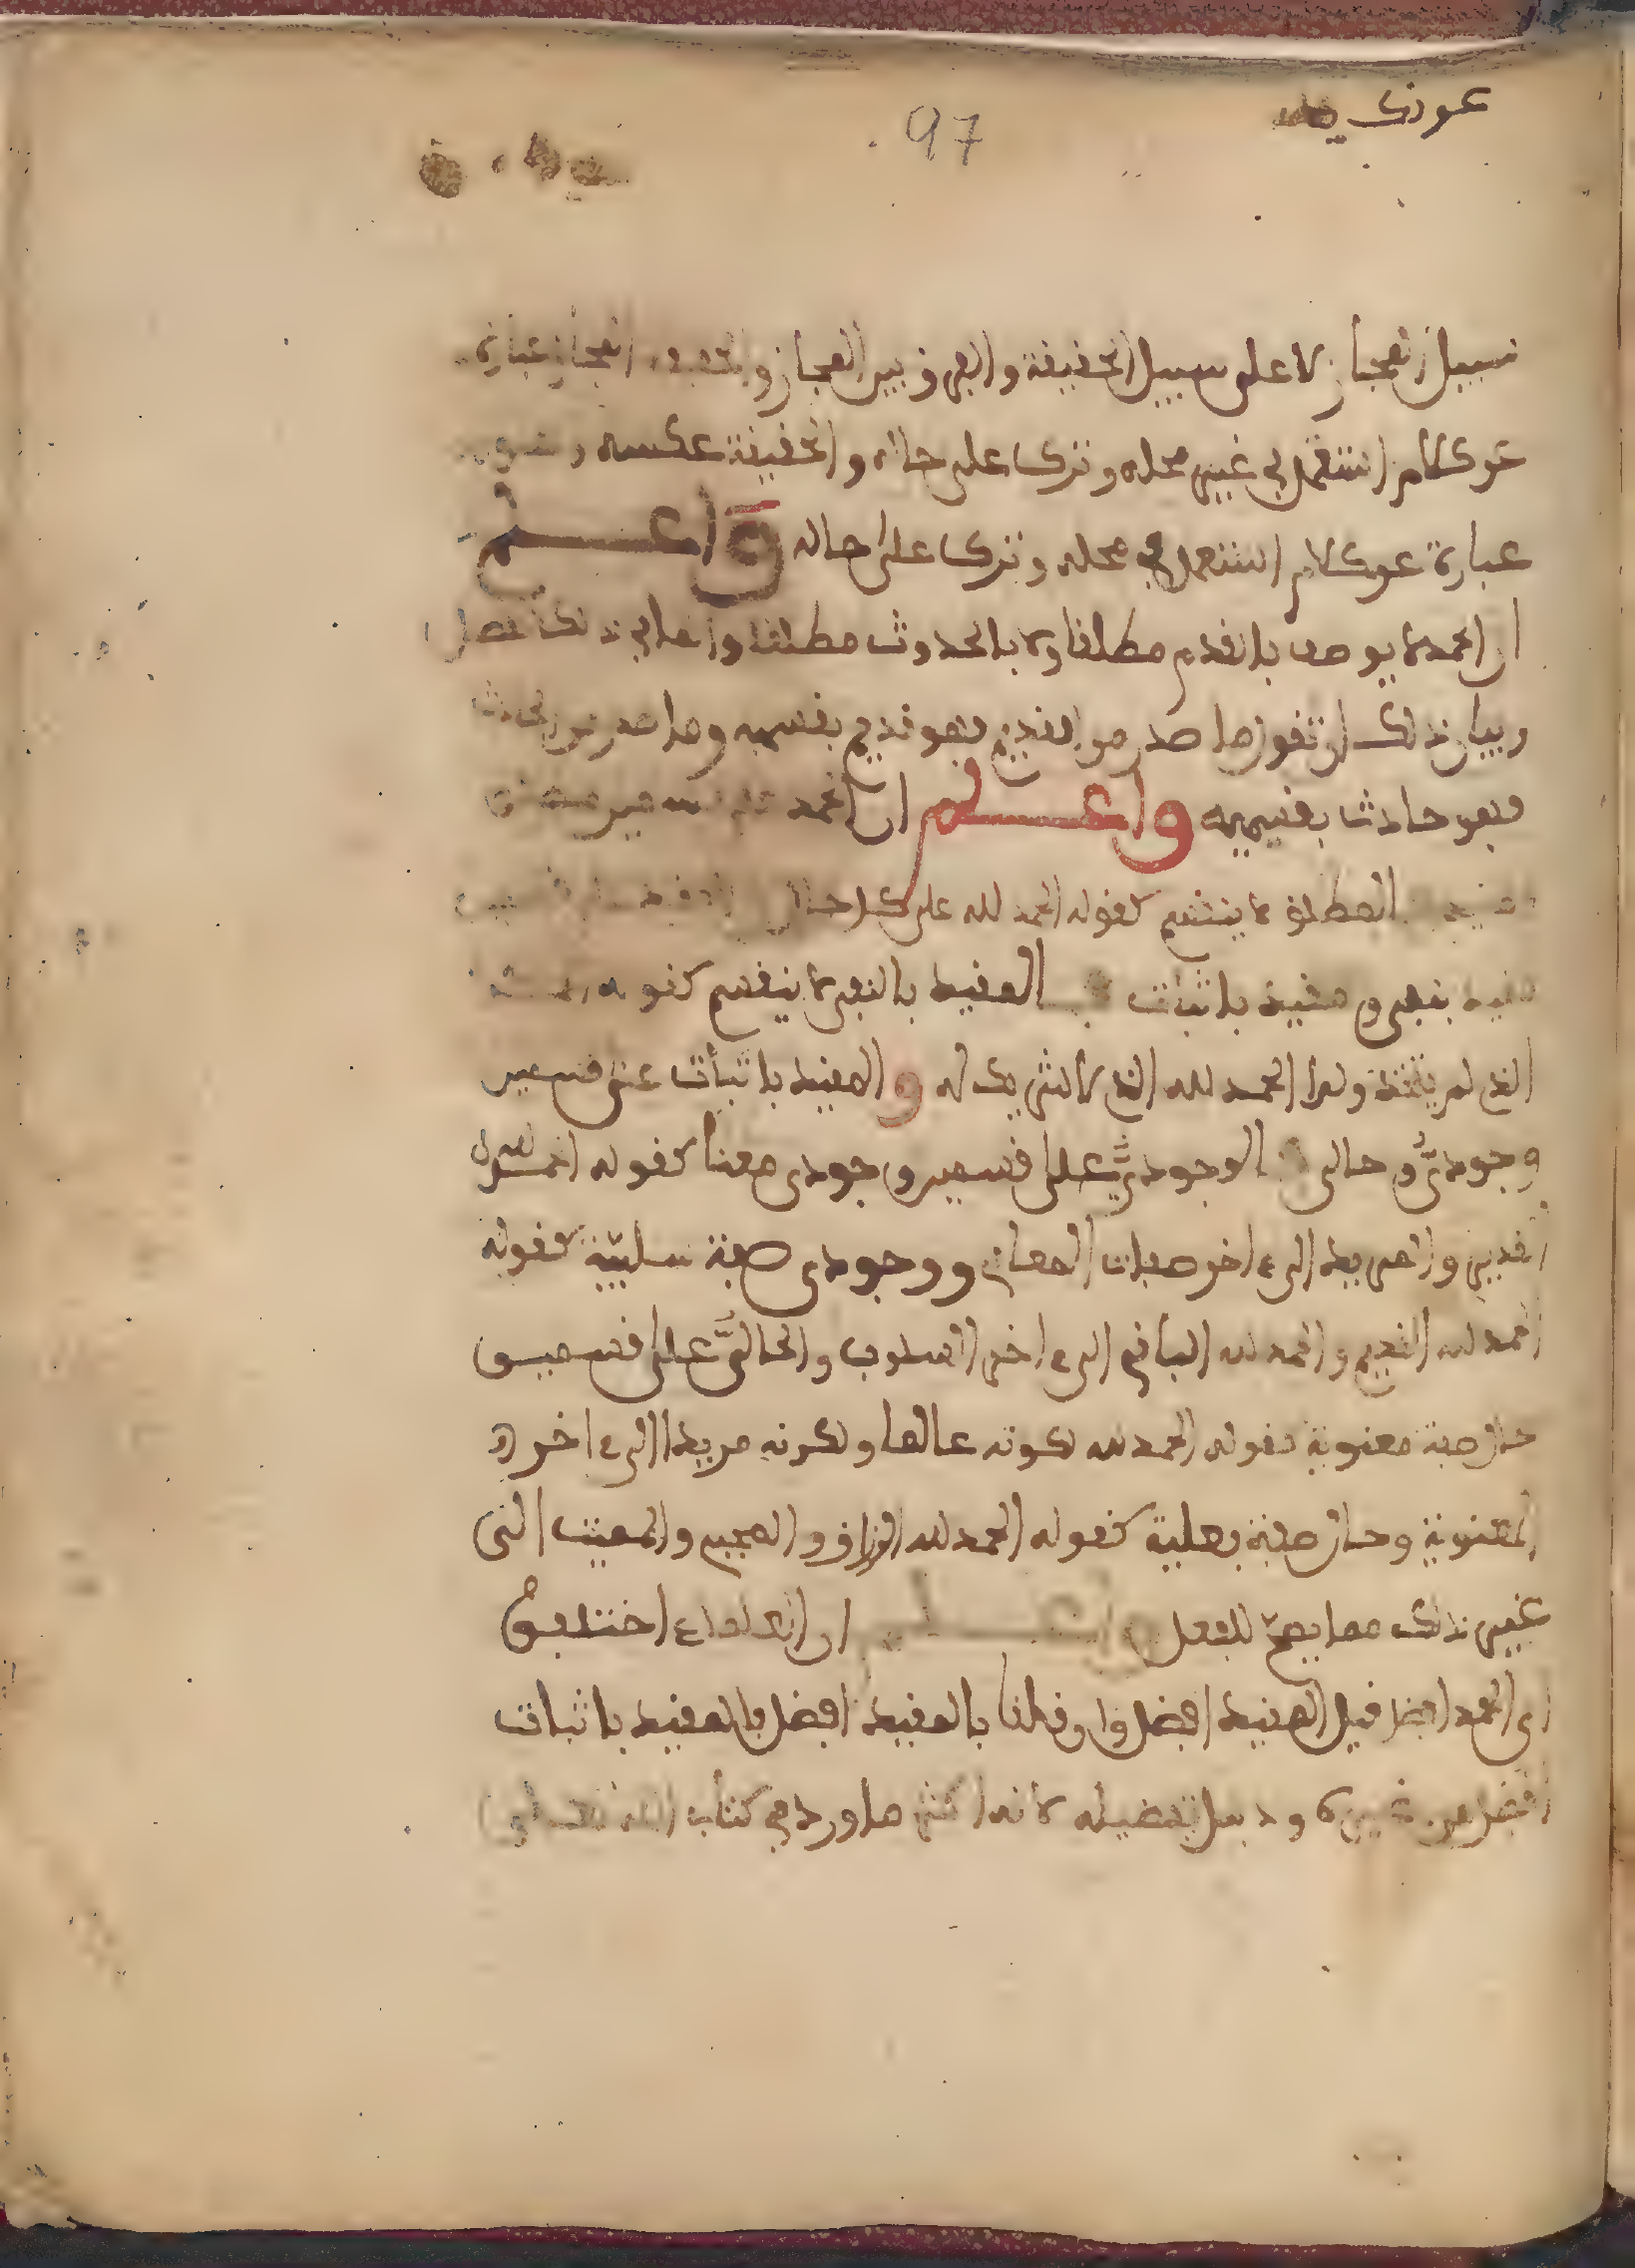 عونك يا
97
سبيل المجاز لا على سبيل الحقيقة والفرق بين المجاز والحقيقة المجاز عبارة
عن كلام استعمل في غير محله وترك على حاله والحقيقة عكسه
عبارة عن كلام استعمل في محله وترك على حاله واعلم
ان الحمد لا يوصف بالقدم مطلقا ولا بالحدوث مطلقا وانما في ذلك تفصيل
وبيان ذلك ان تقول ما صدر من القديم فهو قديم بقسميه وما صدر من الحادث
فهو حادث بقسميه واعلم ان الحمد على قسمين
المطلق لا ينقسم كقوله الحمد لله على كل حال
مقيد بنفي ومقيد باثبات المقيد بالنفي لا ينقسم كقوله
الذي لم يتخذ ولدا الحمد لله الذي لا شريك له والمقيد باثبات على قسمين
وجودي وحالي الوجودي على قسمين وجودي معنا كقوله الحمد لله
القدير والمريد الى ءاخر صفات المعاني ووجودي صفة سلبية كقوله
الحمد لله القديم والحمد لله الباقي الى ءاخر السلوب والحالي على قسمين
حال صفة معنوية كقوله الحمد لله لكونه عالما ولكونه مريدا الى ءاخر
المعنوية وحال صفة فعلية كقوله الحمد لله الرزاق والمحيي والمميت الى
غير ذلك مما يصح للفعل واعلم ان العلماء اختلفوا
اي الحمد افضل قيل المقيد افضل وان قلنا بالمقيد افضل فالمقيد باثبات
افضل من غيره ودليل تفضيله لانه اكثر ما ورد في كتاب الله تعالى